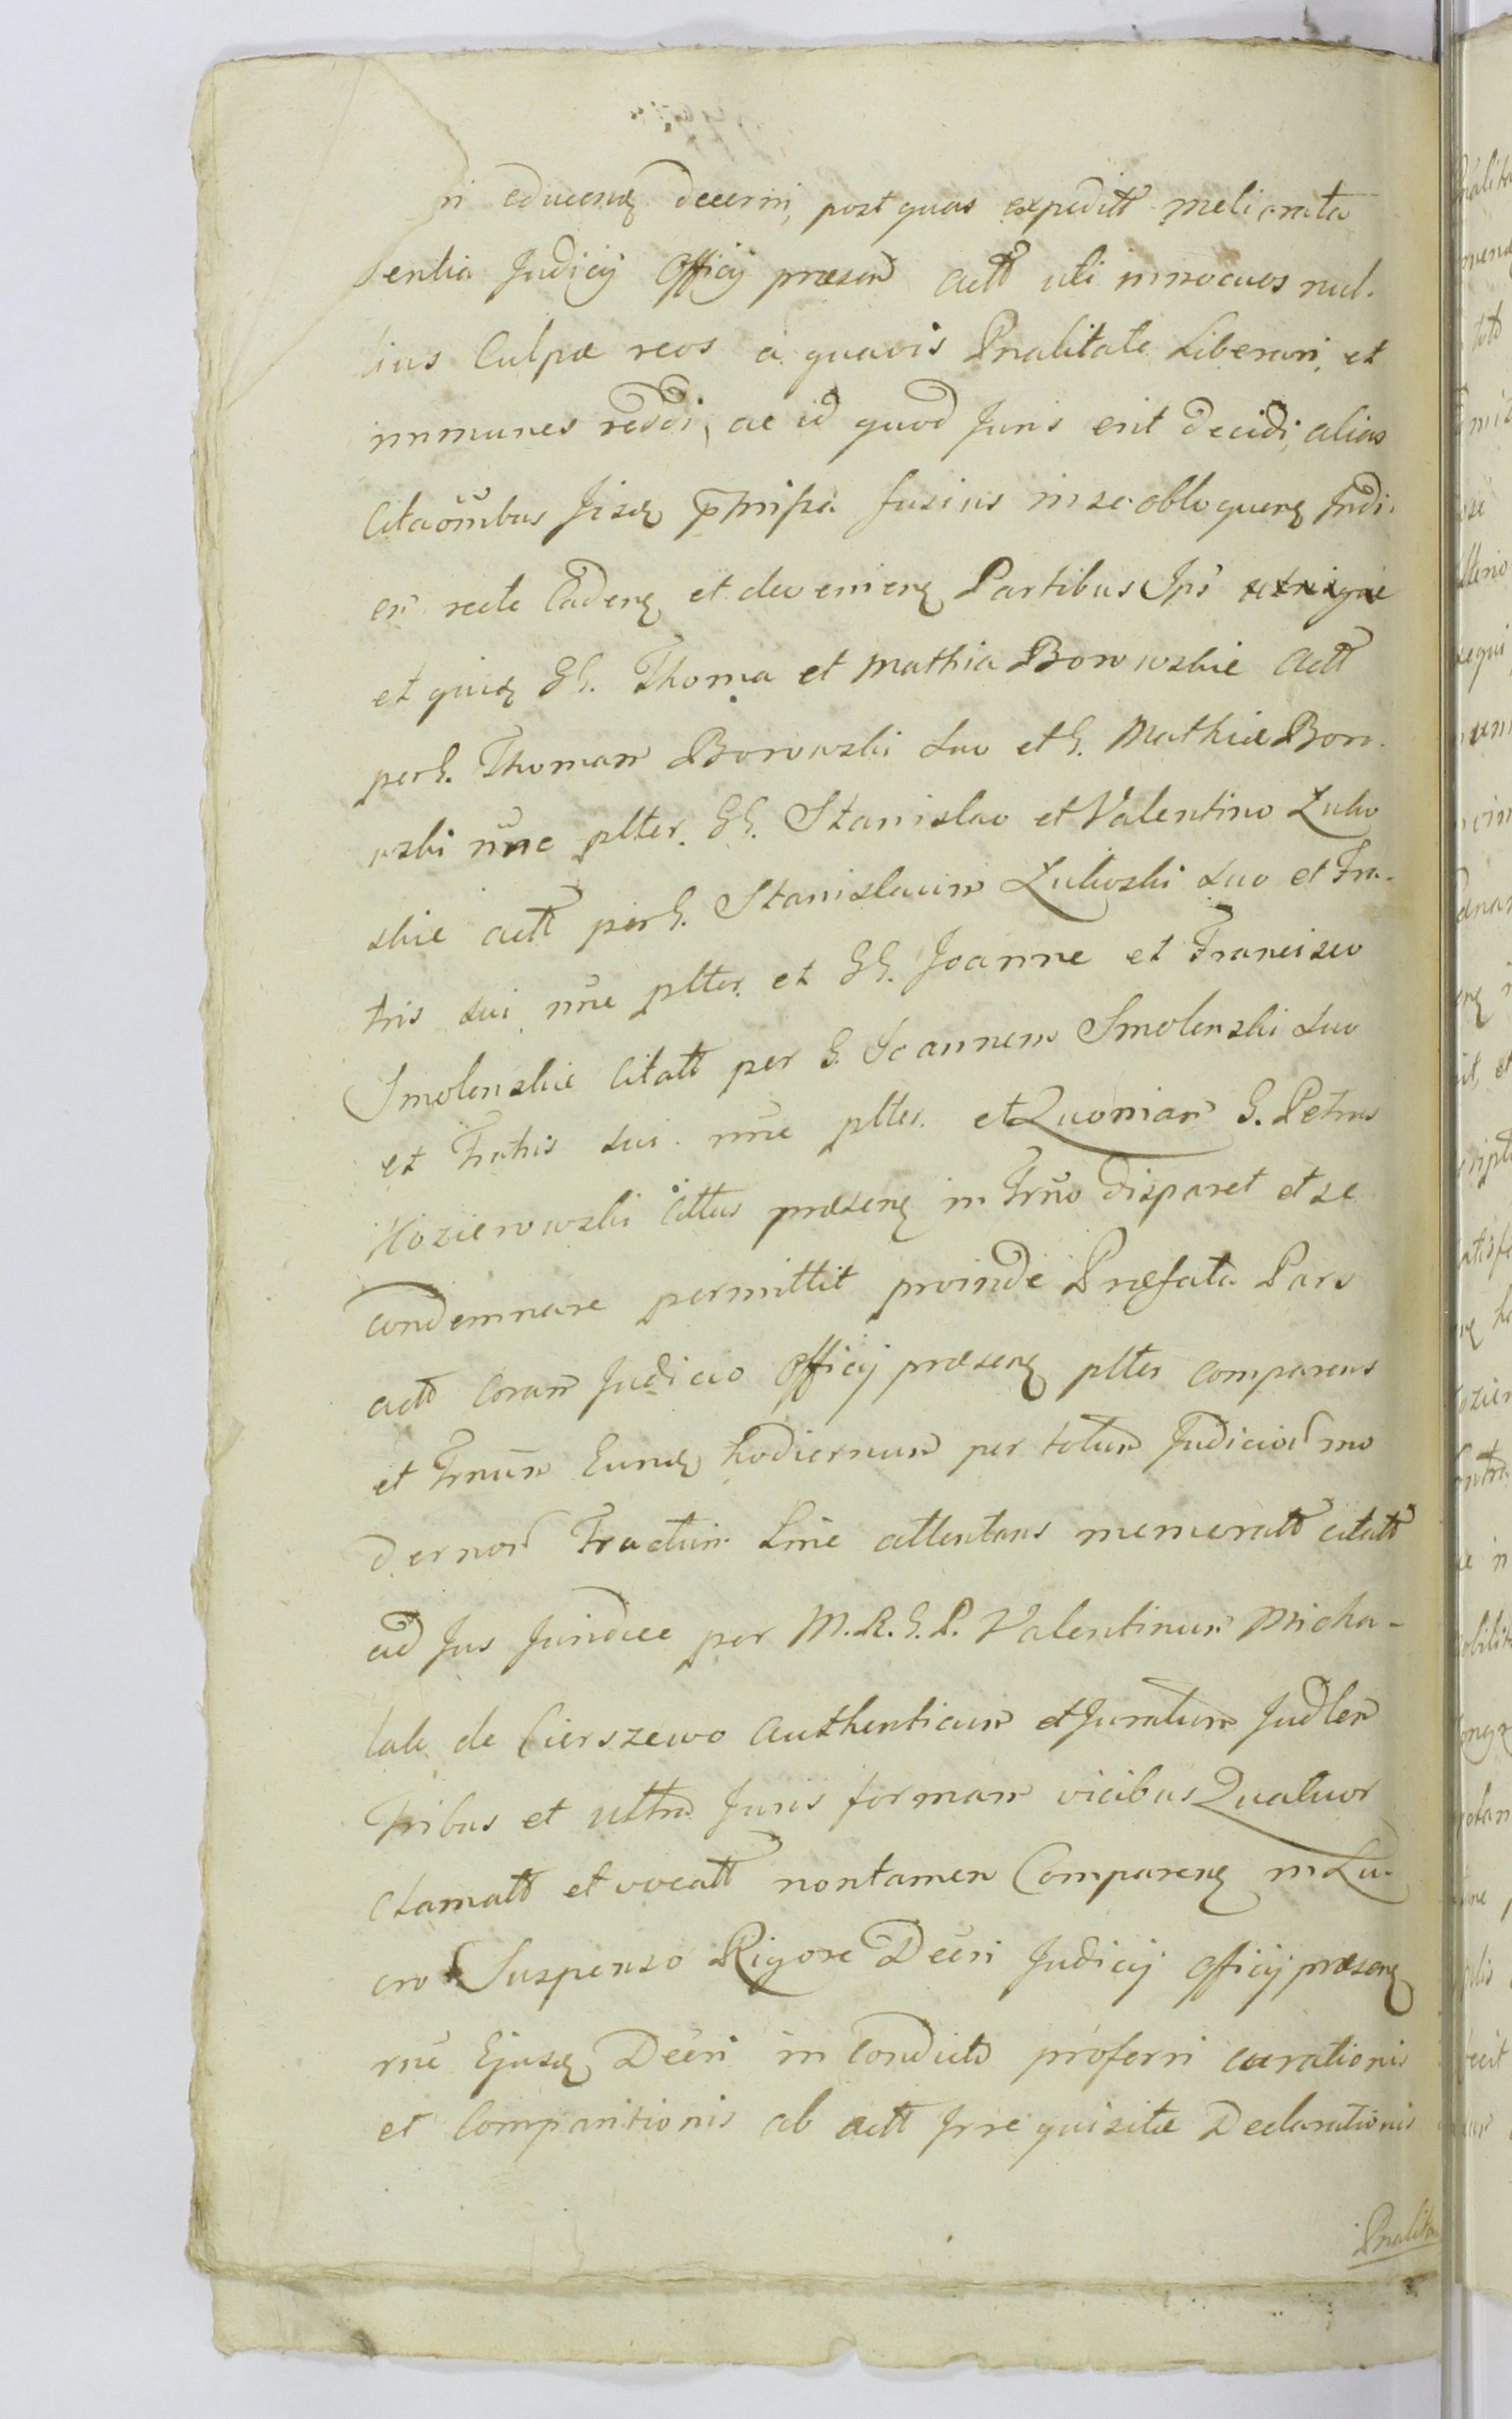 ri educenꝫ decerni, post quas expeditt meliorata
Sentia Judicij Officij præsen actt uti innocuos nul.
lius Culpæ reos a quavis Pnalitate Liberari, et
immunes reddi, ac id quod Juris erit decidi, alias
Citaonibus Jisdꝫ præmissa fusius in se obloquenꝫ Judi.
er recte Cadenꝫ et devenienꝫ Partibus Ips utrisque
et quidꝫ GG. Thoma et Mathia Borowskie Actt
per G. Thomam Borowski suo et G. Mathiæ Boro.
wski nne pltter. GG. Stanislao et Valentino Zulko
skie actt per G. Stanislaum Zulkoski suo et Fra-
tris sui nne pltter. et GG. Joanne et Francisco
Smolenskie Citatt per G. Joannem Smolenski suo
et Fratris sui nne pltter. et Quoniam G. Petrus
Kozierowski Cittus præsenꝫ in Trno disparet et se
condemnare permittit proinde Præfata Pars
actt Coram Judicio Officij præsenꝫ pltter comparens
et Trnum Eundꝫ hodiernum per totum Judicior mo
dernor Tractum Sine attentans memoratt citatt
ad Jus Juridice per M.R.G.P. Valentinum Micha-
lak de Cierszewo authenticum et Juratum Judlem
Tribus et ultra Juris formam vicibus Quatuor
clamatt et vocatt non tamen Comparenꝫ in Lu-
cro Suspenso Rigore Decri Judicij Officij præsenꝫ
rne Ejusdꝫ Decri in Condicto proferri curationis
et Comparitionis ab actt Irrequisitæ Declarationis
Pnalita